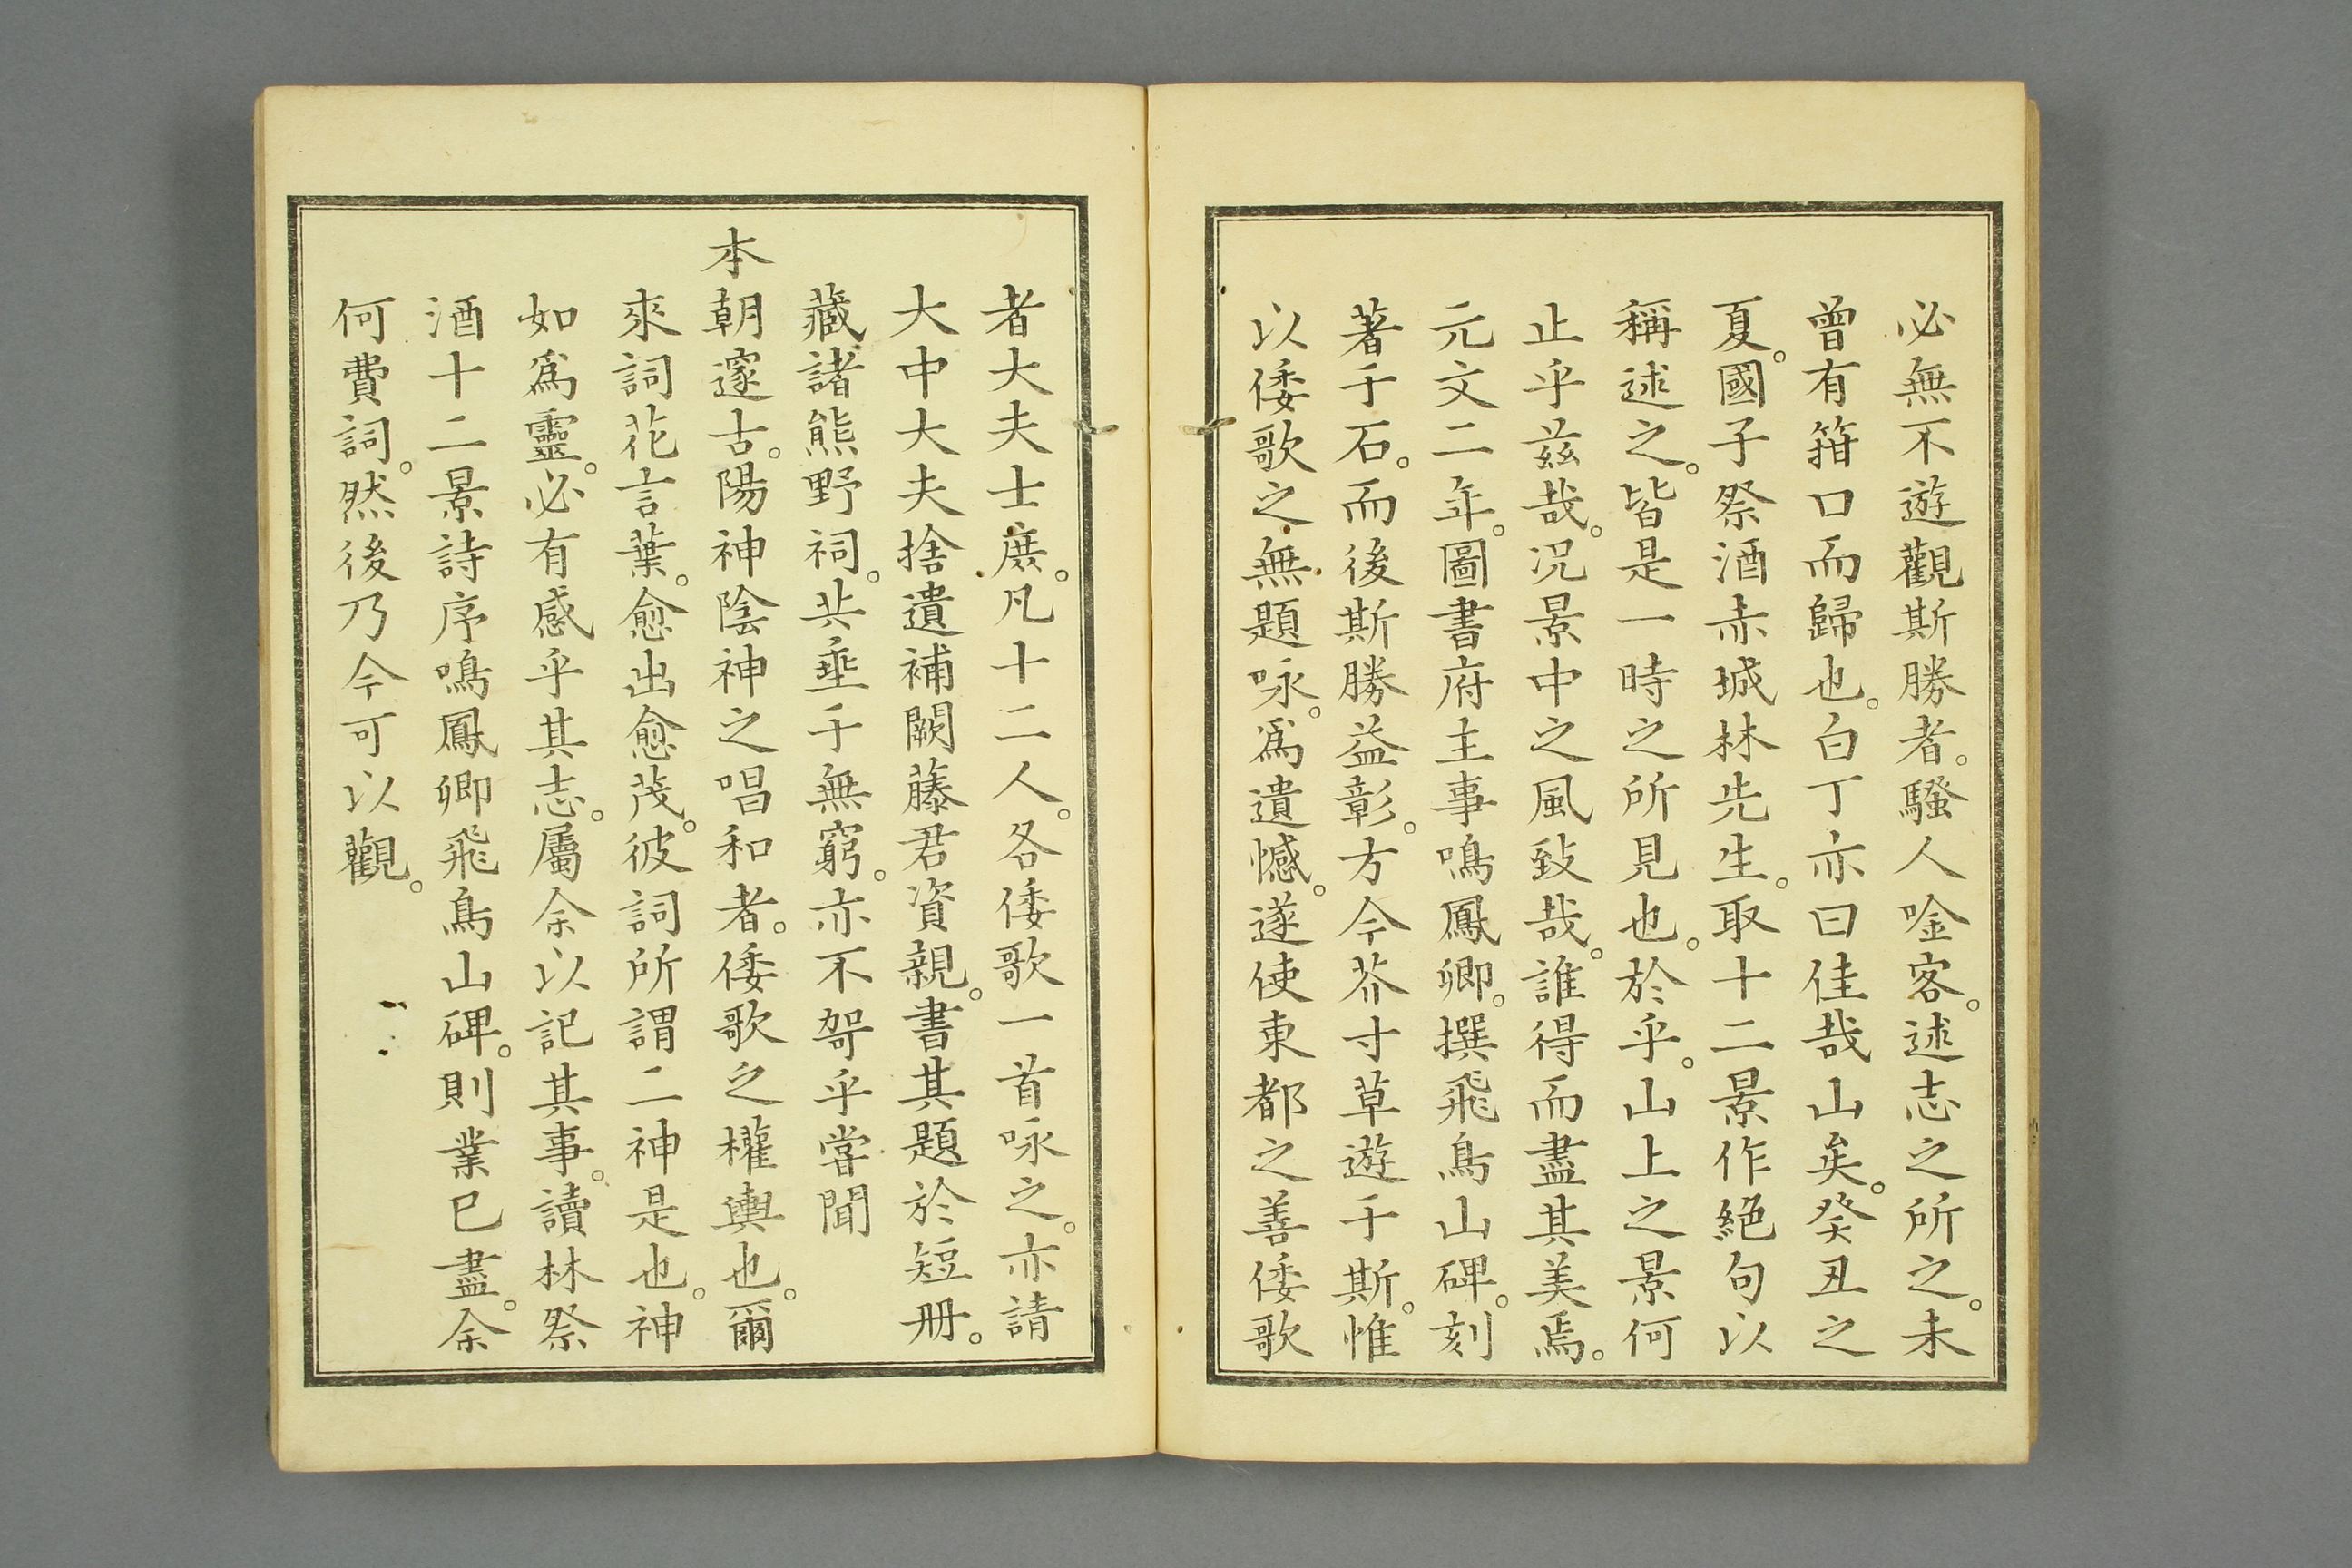 必無不遊觀斯勝者。騷人唫客。述志之所之。未
曾有箝口而歸也。白丁亦曰佳哉山矣。癸丑之
夏。國子祭酒赤城林先生。取十二景作絕句以
稱述之。皆是一時之所見也。於乎。山上之景何
止乎茲哉。况景中之風致哉。誰得而盡其美焉。
元文二年。圖書府主事鳴鳳卿。撰飛鳥山碑。刻
著于石。而後斯勝益彰。方今芥寸草遊于斯。惟
以倭歌之無題咏。爲遺憾。遂使東都之善倭歌
者大夫士庶。凡十二人。各倭歌一首咏之。亦請
大中大夫捨遺補闕藤君資親。書其題於短册。
藏諸熊野祠。共垂于無窮。亦不哿乎嘗聞
本朝邃古。陽神陰神之唱和者。倭歌之權輿也。爾
來詞花言葉。愈出愈茂。彼詞所謂二神是也。神
如爲靈。必有感乎其志。屬余以記其事。讀林祭
酒十二景詩序鳴鳳卿飛鳥山碑。則業已盡。余
何費詞。然後乃今可以觀。